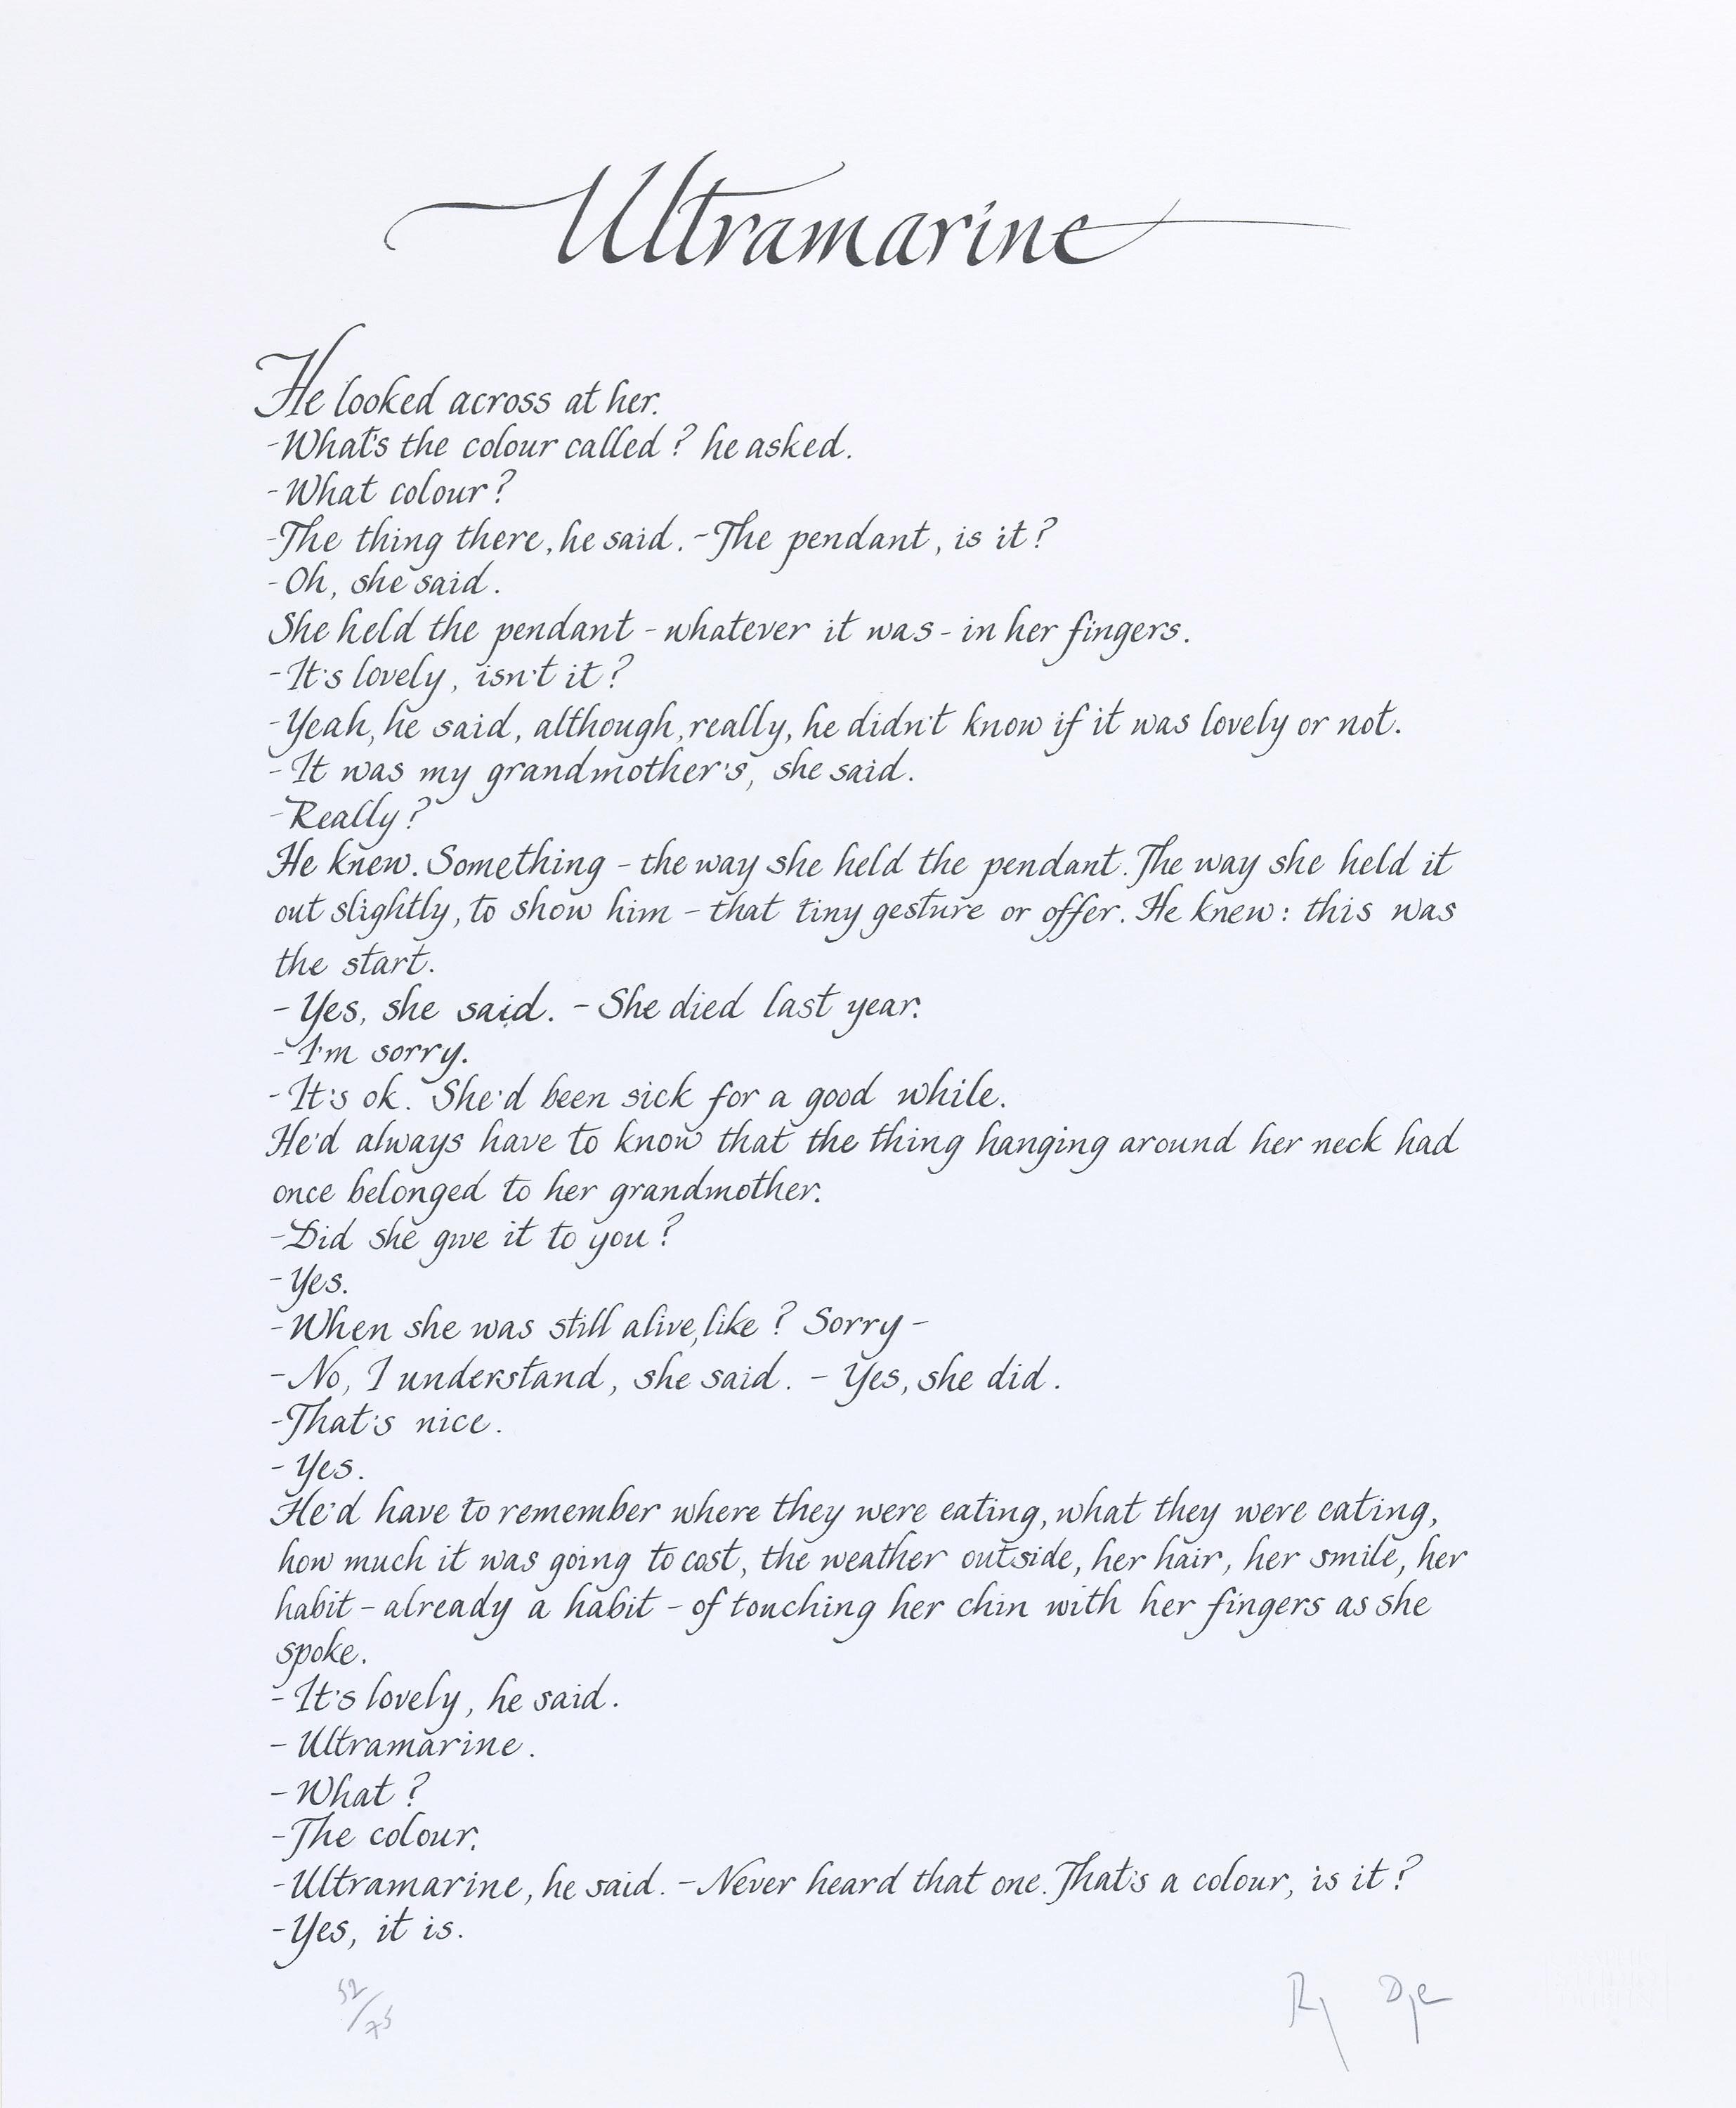 Ultramarine
He looked across at her.
-What's the colour called? he asked.
-What colour?
-The thing there, he said. -The pendant, is it?
-Oh, she said.
She held the pendant - whatever it was - in her fingers.
-It's lovely, isn't it?
-Yeah, he said, although, really, he didn't know if it was lovely or not.
-It was my grandmother's, she said.
-Really?
He knew. Something - the way she held the pendant. The way she held it
out slightly, to show him - that tiny gesture or offer. He knew: this was
the start.
- Yes, she said. - She died last year.
- I'm sorry.
- It's ok. She'd been sick for a good while.
He'd always have to know that the thing hanging around her neck had
once belonged to her grandmother.
-Did she give it to you?
- Yes.
-When she was still alive, like? Sorry -
-No, I understand, she said. - Yes, she did.
-That's nice.
- Yes.
He'd have to remember where they were eating, what they were eating,
how much it was going to cost, the weather outside, her hair, her smile, her
habit - already a habit - of touching her chin with her fingers as she
spoke.
- It's lovely, he said.
- Ultramarine.
- What?
-The colour.
-Ultramarine, he said. -Never heard that one. That's a colour, is it?
-Yes, it is.
52/75